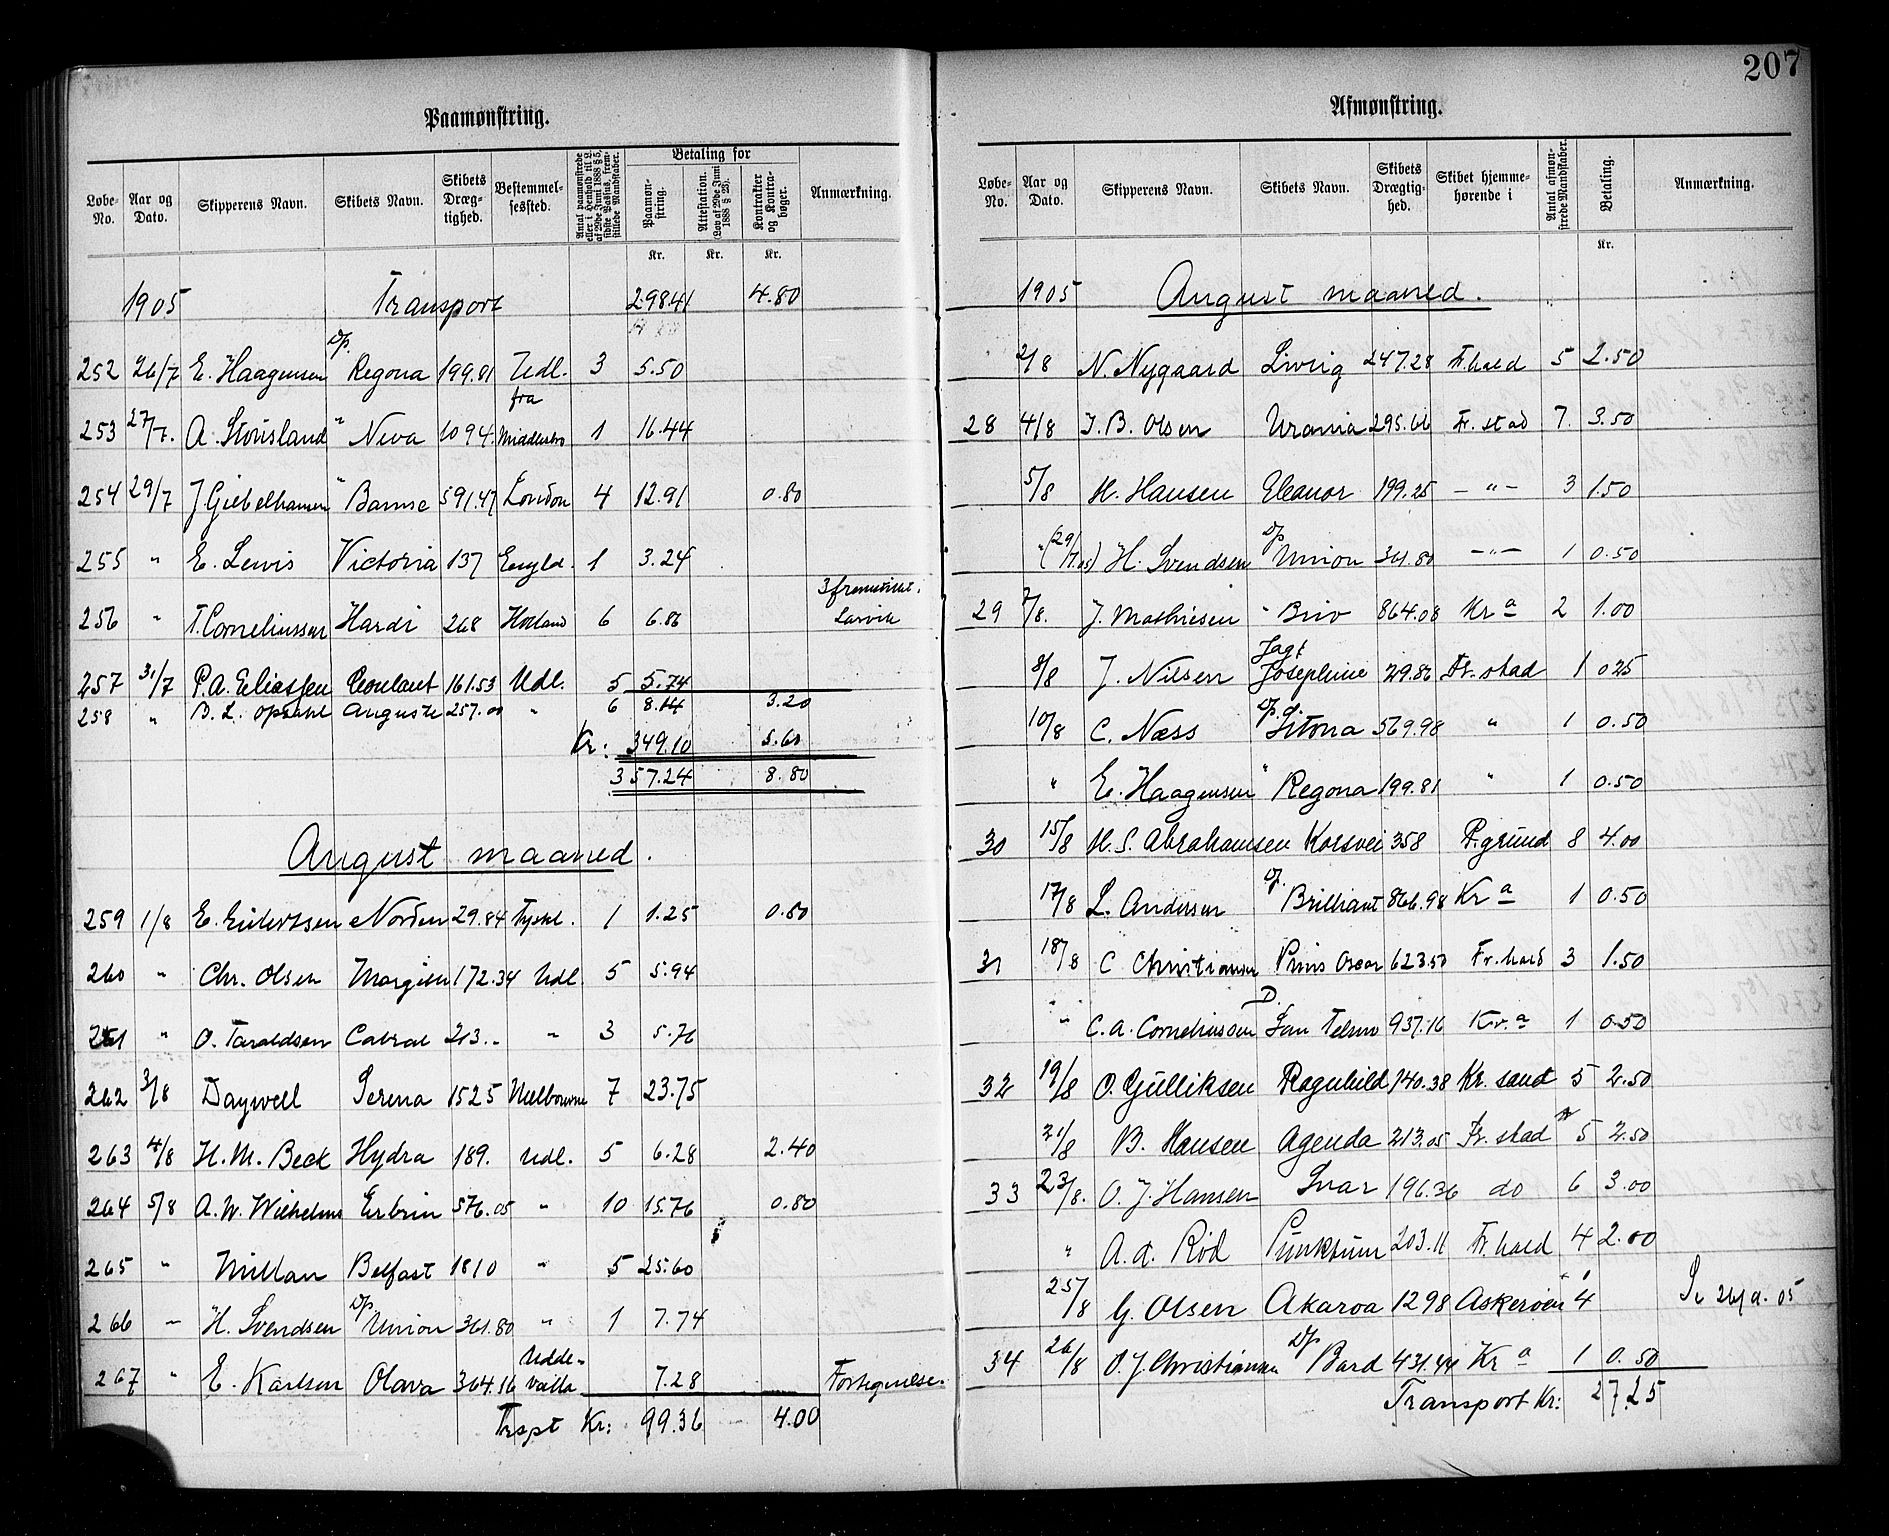 207
Paamønstring.
Løbe-No. | Aar og Dato. | Skipperens Navn. | Skibets Navn. | Skibets Dræg-tighed. | Bestemmel-sessted. | Antal paamønstrede eller i Henhold til L. af 29de Juni 1888 § 5, sidste Passus, frem-stillede Mandskaber. | Betaling for | Paamøn-string. | Attestation. (Lov af 29de Juni 1888 § 23). | Kontrakter og Kontra-bøger. | Anmærkning.
Kr. | Kr. | Kr.
1905 | Transport | 298.41 | 4.80
252 | 26/7 | E. Haagensen | Dp. Regona | 199.81 | Udl. | 3 | 5.50
253 | 27/7. | A. Stousland | " Neva | 1094. | fra Middlesbro | 1 | 16.44
254 | 29/7 | J Giebelhausen | " Bamse | 591.47 | London | 4 | 12.91 | 0.80
255 | " | E. Lewis | Victoria | 137 | Engld. | 1 | 3.24
256 | " | T. Corneliussen | Hardi | 268 | Holland | 6 | 6.86 | 3 fremstillet i Larvik
257 | 31/7 | P. A. Eliassen | Coulant | 161.53 | Udl. | 5 | 5.74
258 | " | B. L. Opsahl | Auguste | 257.00 | " | 6 | 8.14 | 3.20
Kr: 349.10 | 5.60
357.24 | 8.80
August maaned.
259 | 1/8 | E. Evertssen | Norden | 29.84 | Tyskl. | 1 | 1.25 | 0.80
260 | " | Chr. Olsen | 172.34 | Udl. | 5 | 5.94
261 | " | O. Taraldsen | Cabral | 213.. | " | 3 | 5.76
262 | 3/8 | Daywell | Serena | 1525 | Melbourne | 7 | 23.75
263 | 4/8 | H. M. Beck | Hydra | 189. | Udl. | 5 | 6.28 | 2.40
264 | 5/8 | A. W. Wilhelms | 576.05 | " | 10 | 15.76 | 0.80
265 | " | Millan | Belfast | 1810 | " | 5 | 25.60
266 | " | H. Svendsen | Dp Union | 361.80 | " | 1 | 7.74
267 | " | E. Karlson | Olava | 364.16 | Udde-valla | 7.28 | Forhyrelse
Trspt Kr: 99.36 | 4.00
Afmønstring.
Løbe-No. | Aar og Dato. | Skipperens Navn. | Skibets Navn. | Skibets Drægtig-hed. | Skibet hjemme-hørende i | Antal afmøn-strede Mandskaber. | Betaling. | Anmærkning.
Kr.
1905 | August maaned.
2/8 | N. Nygaard | Livlig | 247.28 | F.hald | 5 | 2.50
28 | 4/8 | J. B. Olsen | Urania | 295.66 | Fr. stad | 7. | 3.50
5/8 | H. Hansen | Eleanor | 199.25 | - " - | 3 | 1.50
" (29/7.05) | H. Svendsen | Dp Union | 361.80 | - " - | 1 | 0.50
29 | 7/8. | J. Mathiesen | " Brio | 864.08 | Kr a | 2 | 1.00
8/8 | J. Nilsen | Jagt Josephine | 29.86 | Fr. stad | 1 | 025
10/8 | C. Næss | Dp. Sitona | 569.98 | " | 1 | 0.50
" | E. Haagensen | " Regona | 199.81 | " | 1 | 0.50
30 | 15/8 | H. S. Abrahamsen | Korsvei | 358 | P.grund | 8 | 4.00
17/8 | L. Andersen | Dp. Brilliant | 866.98 | Kr a | 1 | 0.50
31 | 18/8 | C Christiansen | Prins Oscar | 623.50 | Fr. hald | 3 | 1.50
" | C. A. Corneliussen | D. San Telmo | 937.16 | Kr. a | 1 | 0.50
32 | 19/8 | O. Gulliksen | Ragnhild | 140.38 | Kr. sand | 5 | 2.50
21/8 | B. Hansen | Agenda | 213.05 | Fr. stad | 5 | 2.50
33 | 23/8. | O. J. Hansen | Svar | 196.36 | do | 6 | 3.00
" | A. A. Rød | Punktum | 203.11 | Fr. hald | 4 | 2.00
25/8 | G. Olsen | Akaroa | 1298 | Askerøen | 4
34 | 26/8 | O. J. Christiansen | Dp Bard | 431.44 | Kr a | 1 | 0.50
Transport Kr: 27.25